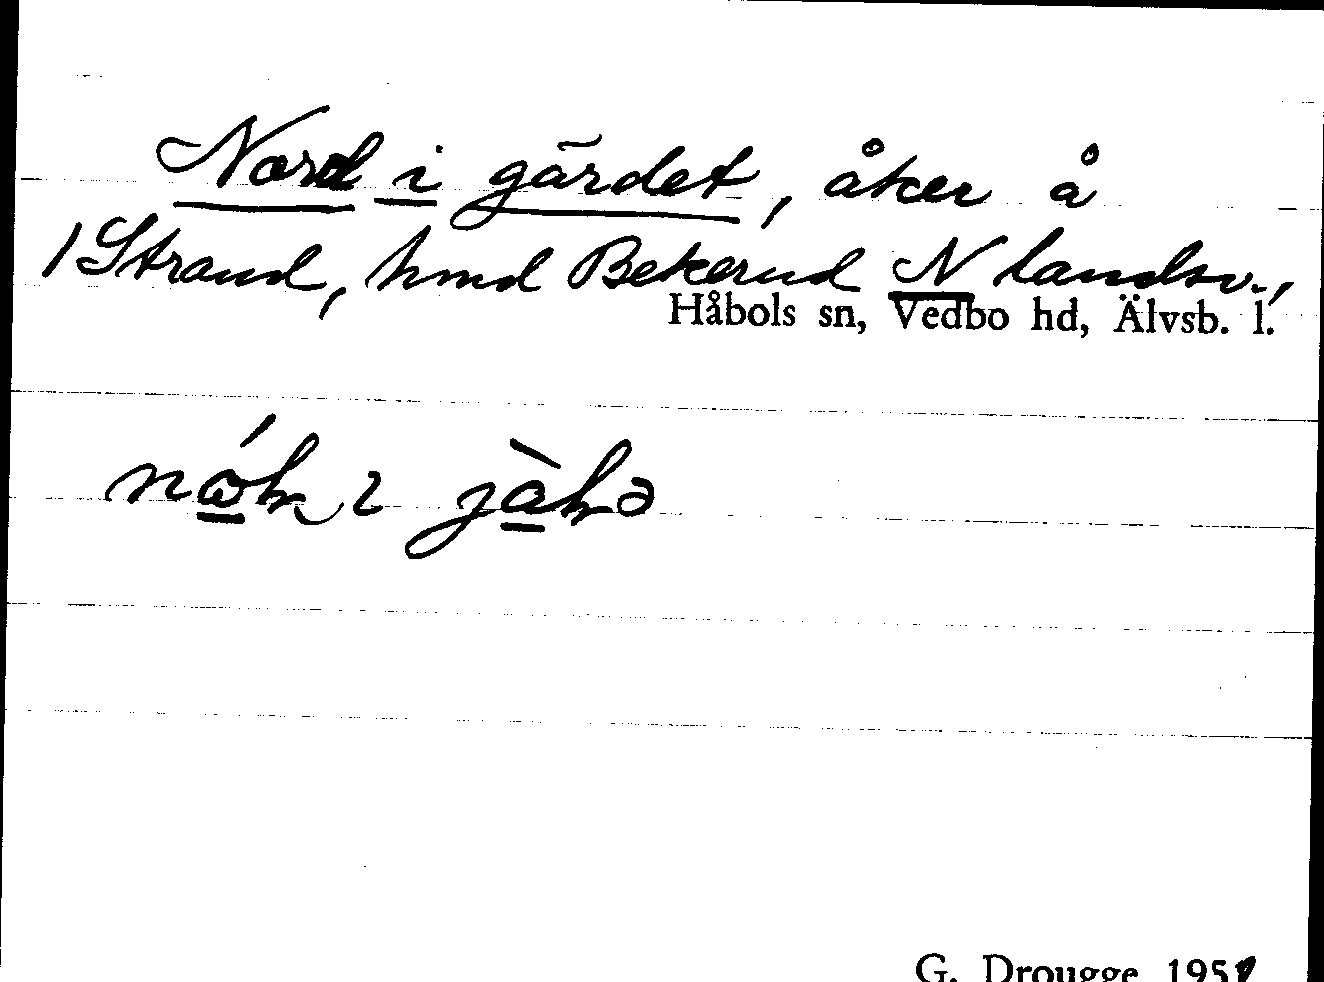 Nord i gärdet, åker å
/Strand, hmd Bekerud N landsv.,
Håbols sn, Vedbo hd, Älvsb. l.
G. Drougge 195